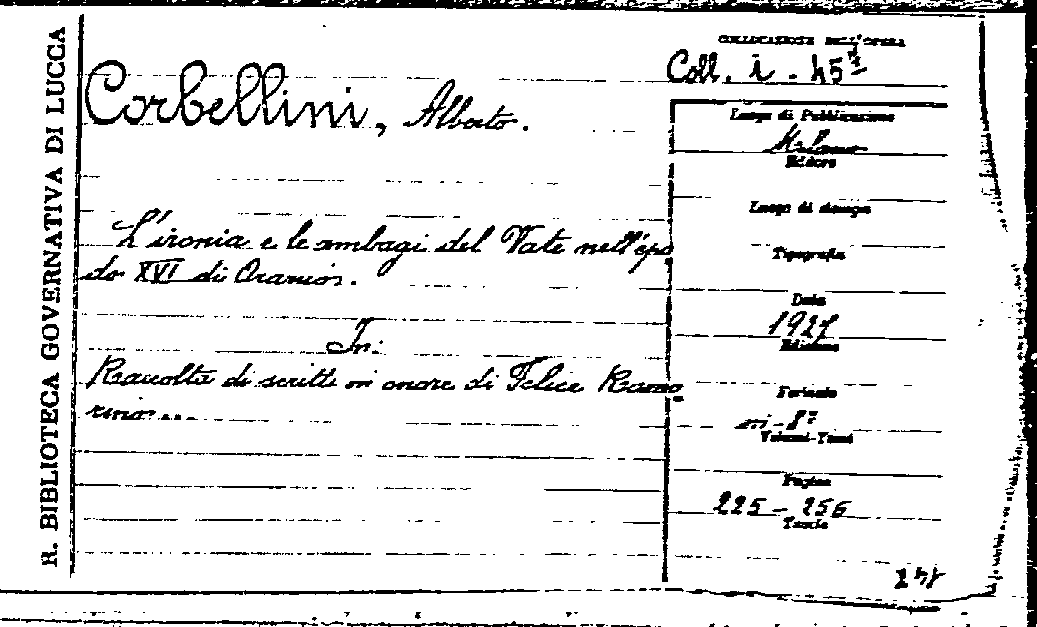 R. BIBLIOTECA GOVERNATIVA DI LUCCA
Corbellini, Alberto.
L'ironia e le ambagi del Vate nell'epo
do XVI di Orazio.
In:
Raccolta di scritti in onore di Felice Ramo
rino...
COLLOCAZIONE DELL'OPERA
Coll. i - 45
Luogo di Pubblicazione
Milano
Editore
Luogo di stampa
Tipografia
Data
1927
Edizione
Formato
in-8º
Volumi-Tomi
Pagine
225 - 256
Tavole